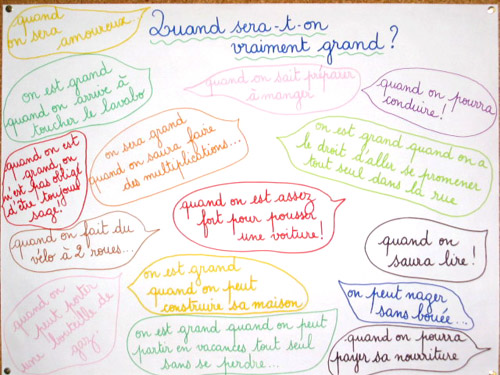 Quand sera-t-on
vraiment grand ?
quand
on sera
amoureux...
on est grand
quand on arrive à
toucher le lavabo
quand on sait préparer
à manger
quand on pourra
conduire !
quand on est
grand, on
n'est pas obligé
d'être toujours
sage.
on sera grand
quand on saura faire
des multiplications...
on est grand quand on a
le droit d'aller se promener
tout seul dans la rue
quand on est assez
fort pour pousser
une voiture !
quand on fait du
vélo à 2 roues...
quand on
saura lire !
quand on
peut porter
une bouteille de
gaz
on est grand
quand on peut
construire sa maison
on peut nager
sans bouée...
on est grand quand on peut
partir en vacances tout seul
sans se perdre...
quand on pourra
payer sa nourriture